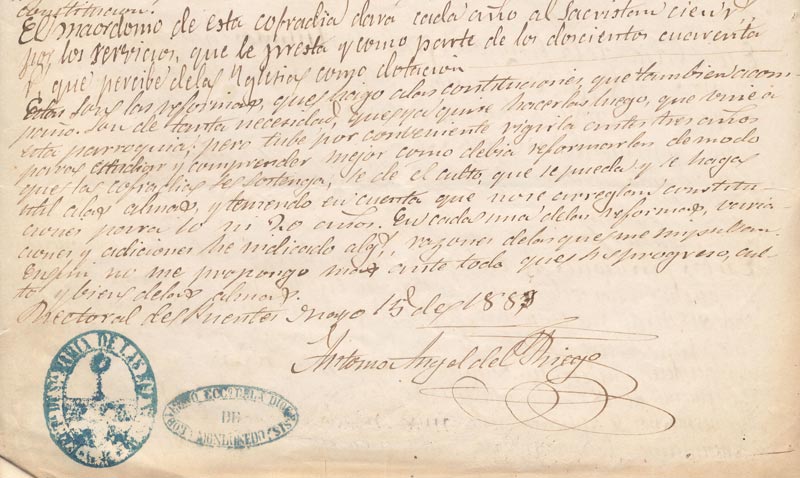 constitucion.
El maordomo de esta cofradia dara cada año al Sacristan cien r,
por los servicios, que le presta y como parte de los doscientos cuarenta
r, que percibe de las Yglesias como dotacion
Estas son las reformas, que hago a las constituciones, que tambien acom
paño. Son de tanta necesidad, que ya quise hacerlas luego, que vine á
esta parroquia; pero tube por conveniente vigilar antes tres años
para estudiar y comprender mejor como debia reformarlas de modo
que las cofradias se sostengan, se de el culto, que se pueda y se hagan
util a las almas, y teniendo en cuenta que no se arreglan constitu-
ciones para 10 ni 20 años. En cada una de las reformas, varia-
ciones y adiciones he indicado alg. razones de las que me impulsan.
En fin no me propongo mas ante todo que el progreso, cul-
to y bien de las almas.
Rectoral de Puentes mayo 15 de 188
Antonio Angel del Riego
MARIA DE LAS
GOBIERNO ECC. DE LA DIOCESIS
DE
MONDOÑEDO